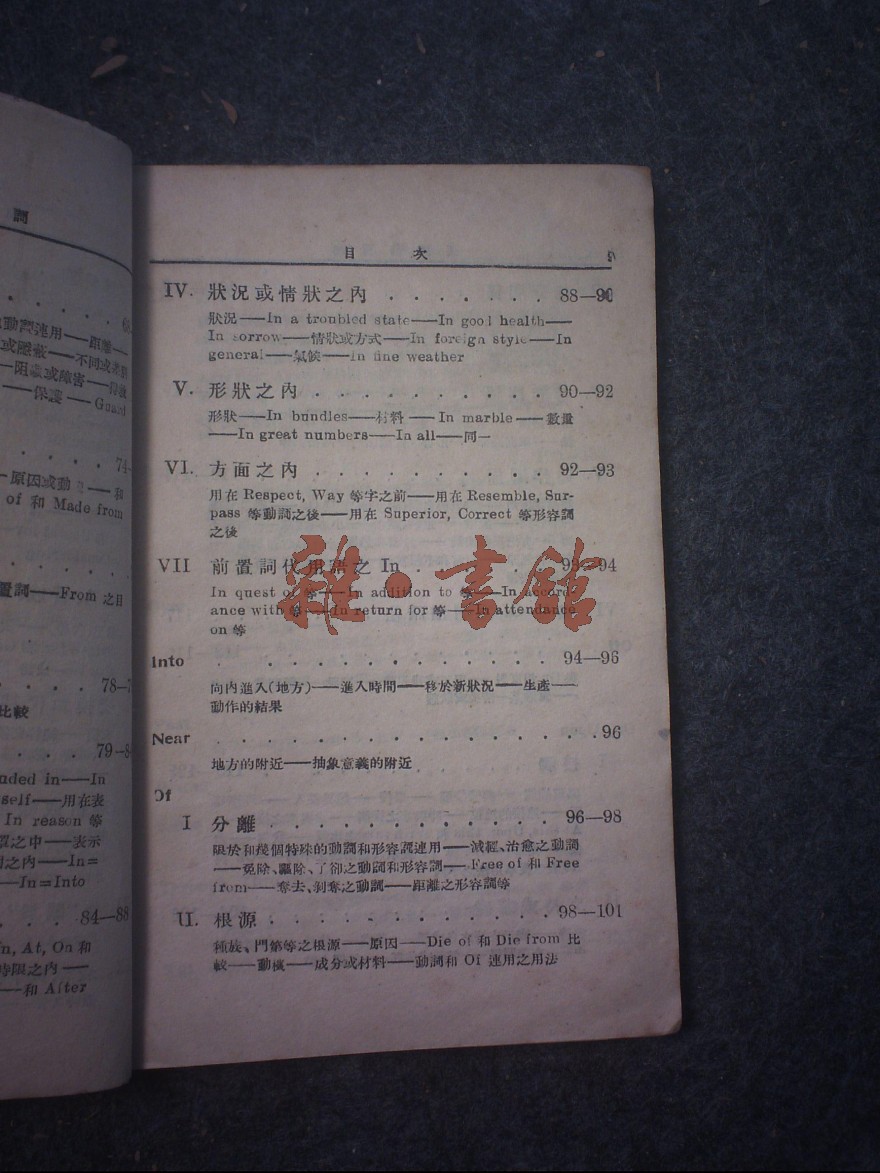 詞
74-
原因或動
和
of 和 Made from
置詞——From 之目
78-
比較
79-8
uded in——In
self——用在表
In reason 等
眾之中——表示
之內——In=
——In=Into
84-88
n, At, On 和
時限之內——
——和 After
目 次 9
IV. 狀況或情狀之內 . . . . . . . 88—90
狀況——In a troubled state——In good health——
In sorrow——情狀或方式——In foreign style——In
general——氣候——In fine weather
V. 形狀之內 . . . . . . . . . . 90—92
形狀——In bundles——材料——In marble——數量
——In great numbers——In all——同一
VI. 方面之內 . . . . . . . . . . 92—93
用在 Respect, Way 等字之前——用在 Resemble, Sur-
pass 等動詞之後——用在 Superior, Correct 等形容詞
之後
VII 前置詞代用語之 In . . . . . . . 93—94
In quest of 等——In addition to 等——In accord-
ance with 等——In return for 等——In attendance
on 等
Into . . . . . . . . . . . . . . 94—96
向內進入(地方)——進入時間——移於新狀況——生產——
動作的結果
Near . . . . . . . . . . . . . . . 96
地方的附近——抽象意義的附近
Of
I 分離 . . . . . . . . . . . . 96—98
限於和幾個特殊的動詞和形容詞連用——減輕、治愈之動詞
——免除、驅除、了卻之動詞和形容詞——Free of 和 Free
from——奪去、剝奪之動詞——距離之形容詞等
II. 根源 . . . . . . . . . . . 98—101
種族、門第等之根源——原因——Die of 和 Die from 比
較——動機——成分或材料——動詞和 Of 連用之用法
雜·書館